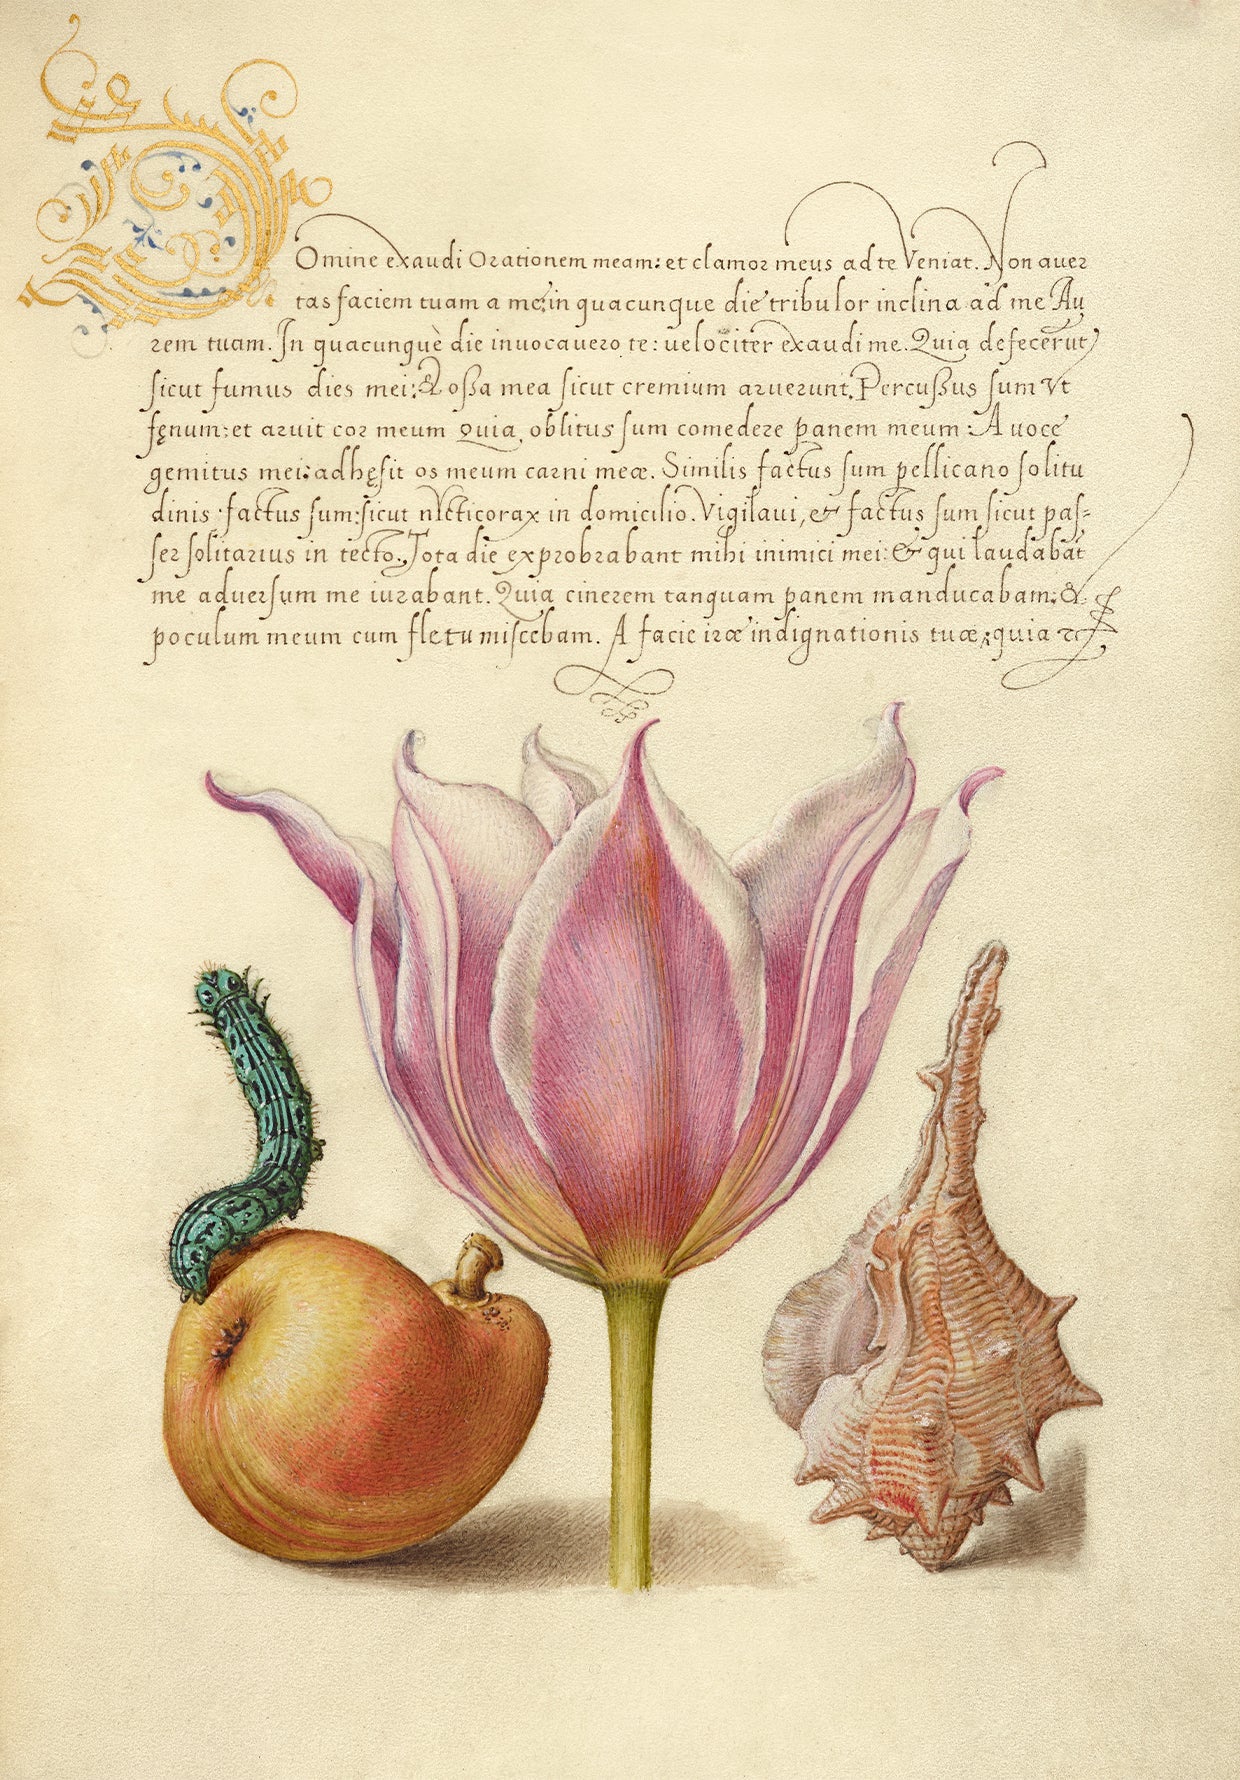 Domine exaudi Orationem meam: et clamor meus ad te Veniat. Non auer
tas faciem tuam a me: in quacunque die tribulor inclina ad me Au
rem tuam. In quacunquè die inuocauero te: uelociter exaudi me. Quia defecerut
sicut fumus dies mei: & oßa mea sicut cremium aruerunt. Percußus sum Vt
fęnum: et aruit cor meum quia, oblitus sum comedere panem meum: A uoce
gemitus mei: adhęsit os meum carni meæ. Similis factus sum pellicano solitu
dinis factus sum: sicut nicticorax in domicilio. Vigilaui, & factus sum sicut pas-
ser solitarius in tecto. Tota die exprobrabant mihi inimici mei: & qui laudabāt
me aduersum me iurabant. Quia cinerem tanquam panem manducabam: &
poculum meum cum fletu miscebam. A facie iræ indignationis tuæ: quia &c